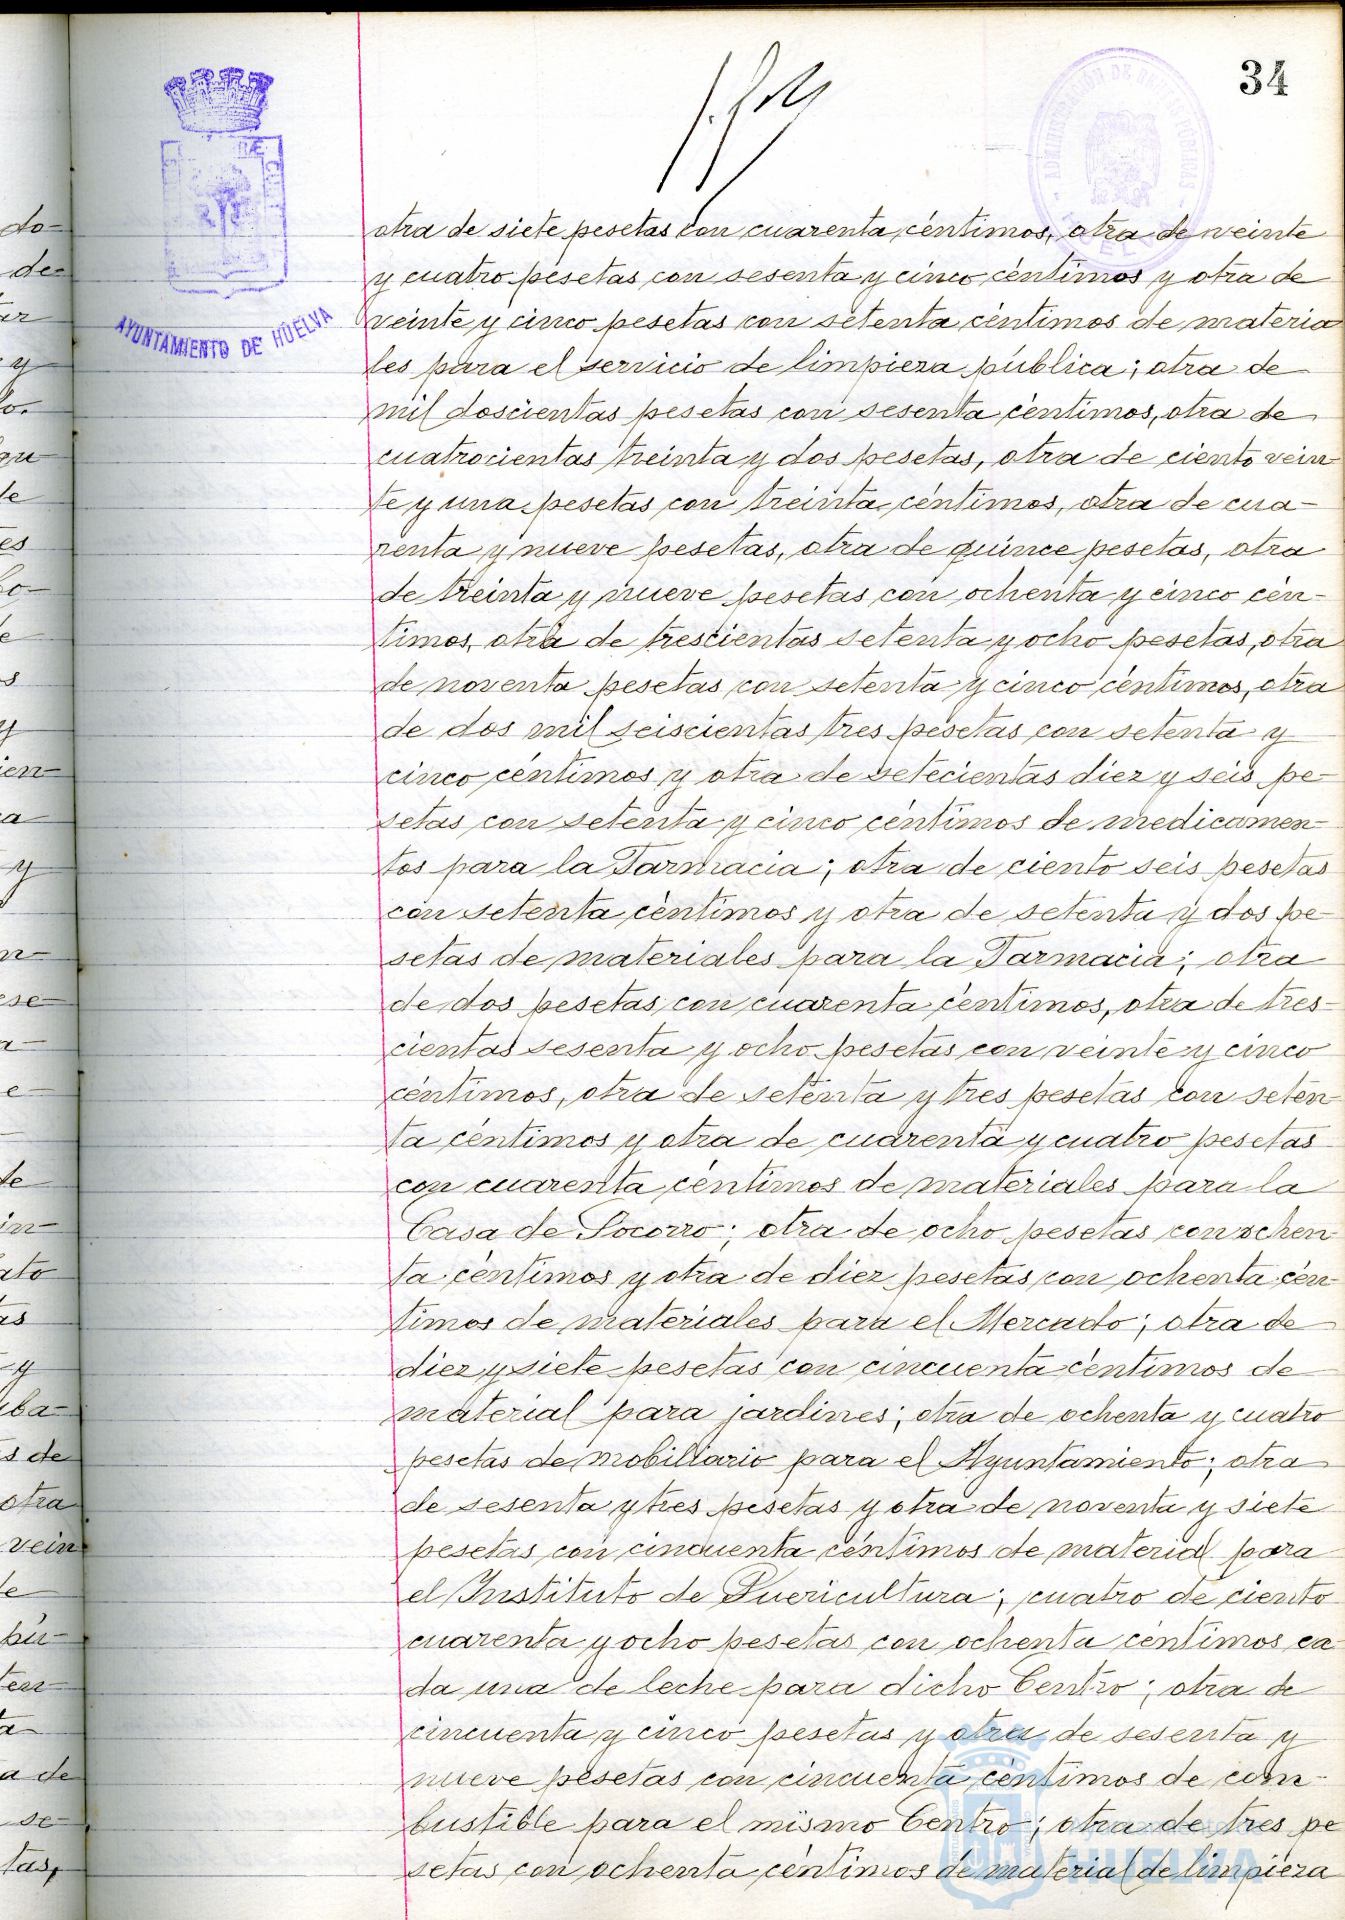 34
AYUNTAMIENTO DE HUELVA
ADMINISTRACIÓN DE PÚBLICAS
otra de siete pesetas con cuarenta céntimos, otra de veinte
y cuatro pesetas con sesenta y cinco céntimos y otra de
veinte y cinco pesetas con setenta céntimos de materia
les para el servicio de limpieza pública; otra de
mil doscientas pesetas con sesenta céntimos, otra de
cuatrocientas treinta y dos pesetas, otra de ciento vein-
te y una pesetas con treinta céntimos, otra de cua-
renta y nueve pesetas, otra de quince pesetas, otra
de treinta y nueve pesetas con ochenta y cinco cén-
timos, otra de trescientas setenta y ocho pesetas, otra
de noventa pesetas con setenta y cinco céntimos, otra
de dos mil seiscientas tres pesetas con setenta y
cinco céntimos y otra de setecientas diez y seis pe-
setas con setenta y cinco céntimos de medicamen-
tos para la Farmacia; otra de ciento seis pesetas
con setenta céntimos y otra de setenta y dos pe-
setas de materiales para la Farmacia; otra
de dos pesetas con cuarenta céntimos, otra de tres-
cientas sesenta y ocho pesetas con veinte y cinco
céntimos, otra de setenta y tres pesetas con seten-
ta céntimos y otra de cuarenta y cuatro pesetas
con cuarenta céntimos de materiales para la
Casa de Socorro; otra de ocho pesetas con ochen-
ta céntimos y otra de diez pesetas con ochenta cén-
timos de materiales para el Mercado; otra de
diez y siete pesetas con cincuenta céntimos de
material para jardines; otra de ochenta y cuatro
pesetas de mobiliario para el Ayuntamiento; otra
de sesenta y tres pesetas y otra de noventa y siete
pesetas con cincuenta céntimos de material para
el Instituto de Puericultura; cuatro de ciento
cuarenta y ocho pesetas con ochenta céntimos ca
da una de leche para dicho Centro; otra de
cincuenta y cinco pesetas y otra de sesenta y
nueve pesetas con cincuenta céntimos de com-
bustible para el mismo Centro; otra de tres pe
setas con ochenta céntimos de material de limpieza
HUELVA